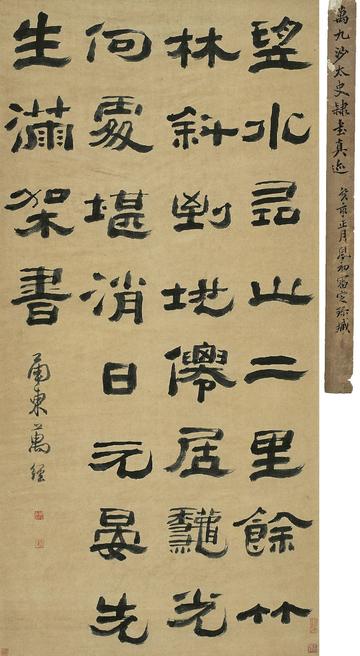 望水尋山二里餘竹
林斜到地僊居龝光
何處堪消日元晏先
生滿架書
甬東萬經
萬九沙太史隸書真迹
癸亥正月初審定珍藏